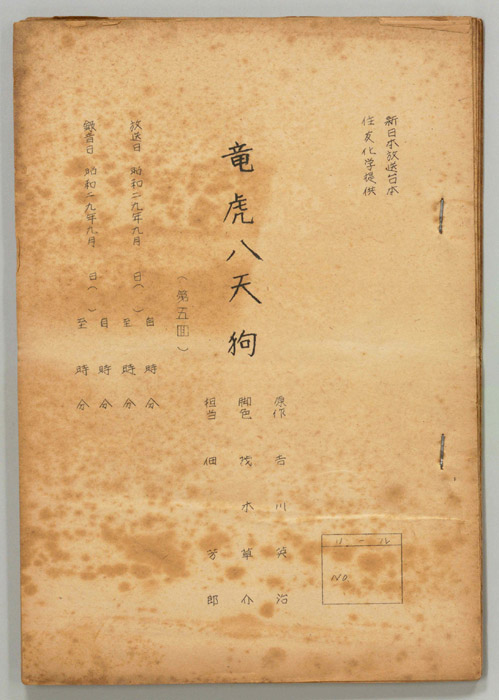 新日本放送台本
住友化学提供
竜虎八天狗
（第五回）
原作 吉川英治
脚色 茂木草介
担当 佃芳郎
放送日 昭和二九年九月 日（ ） 自 時 分
至 時 分
録音日 昭和二九年九月 日（ ） 自 時 分
至 時 分
リール
NO